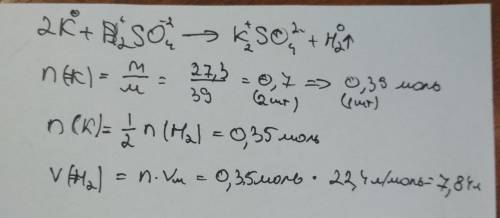 2K⁰ + H₂⁺SO₄²⁻ → K₂⁺SO₄²⁻ + H₂⁰↑
n(K) = m/M = 27,3/39 = 0,7 (2шт) => 0,35 моль (1шт)
n(K) = 1/2 n(H₂) = 0,35 моль
V(H₂) = n · Vм = 0,35 моль · 22,4 л/моль = 7,84 л